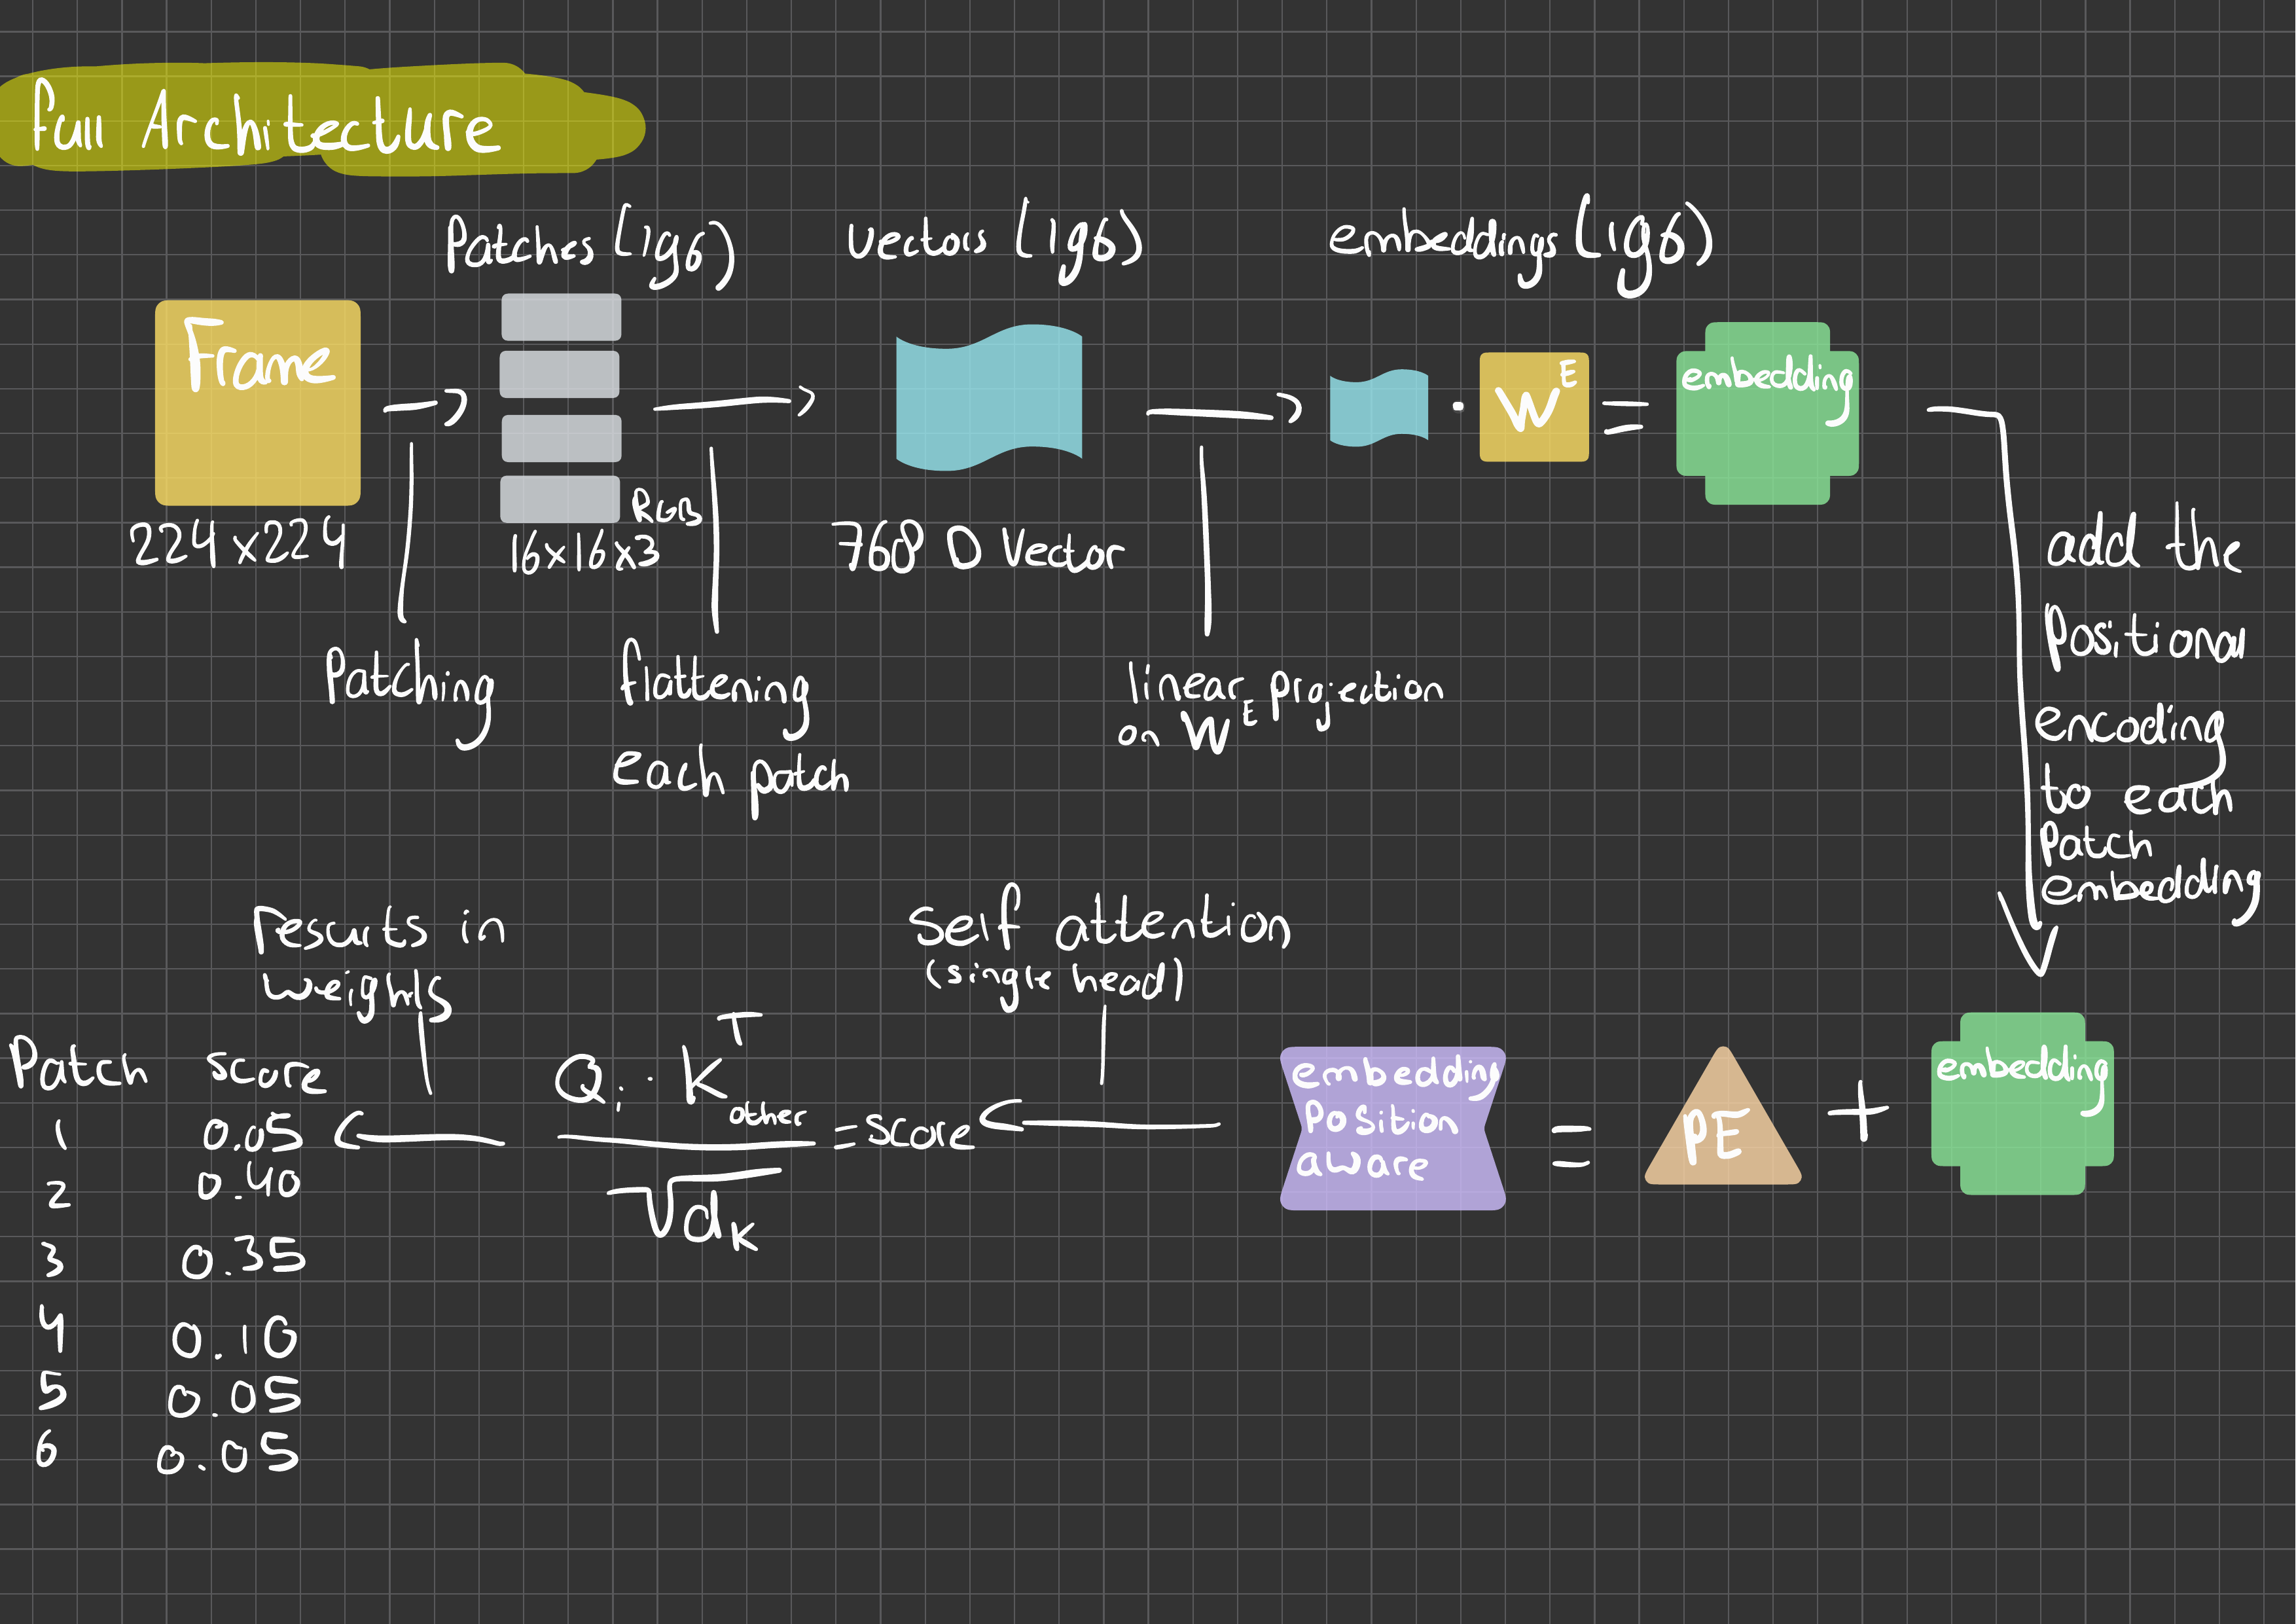 Full Architecture
Patches (196)
Vectors (196)
embeddings (196)
Frame
224x224
RGB
16x16x3
768 D Vector
· W^E =
embedding
Patching
flattening
each patch
linear projection
on W^E
add the
Positional
encoding
to each
Patch
embedding
results in
weights
Self attention
(single head)
Patch score
1 0.05
2 0.40
3 0.35
4 0.10
5 0.05
6 0.05
Qi · K^T other
√dK
= score
embedding
Position
aware
= PE +
embedding